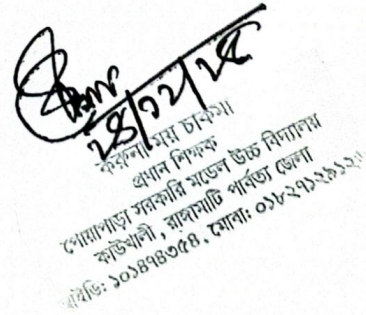 ২৪/১২/২৫
করুনা ময় চাকমা
প্রধান শিক্ষক
পোয়াপাড়া সরকারি মডেল উচ্চ বিদ্যালয়
কাউখালী, রাঙ্গামাটি পার্বত্য জেলা
আইডি: ১০১৪৭৪৩৫৪, মোবা: ০১৮২৭১২৯১২